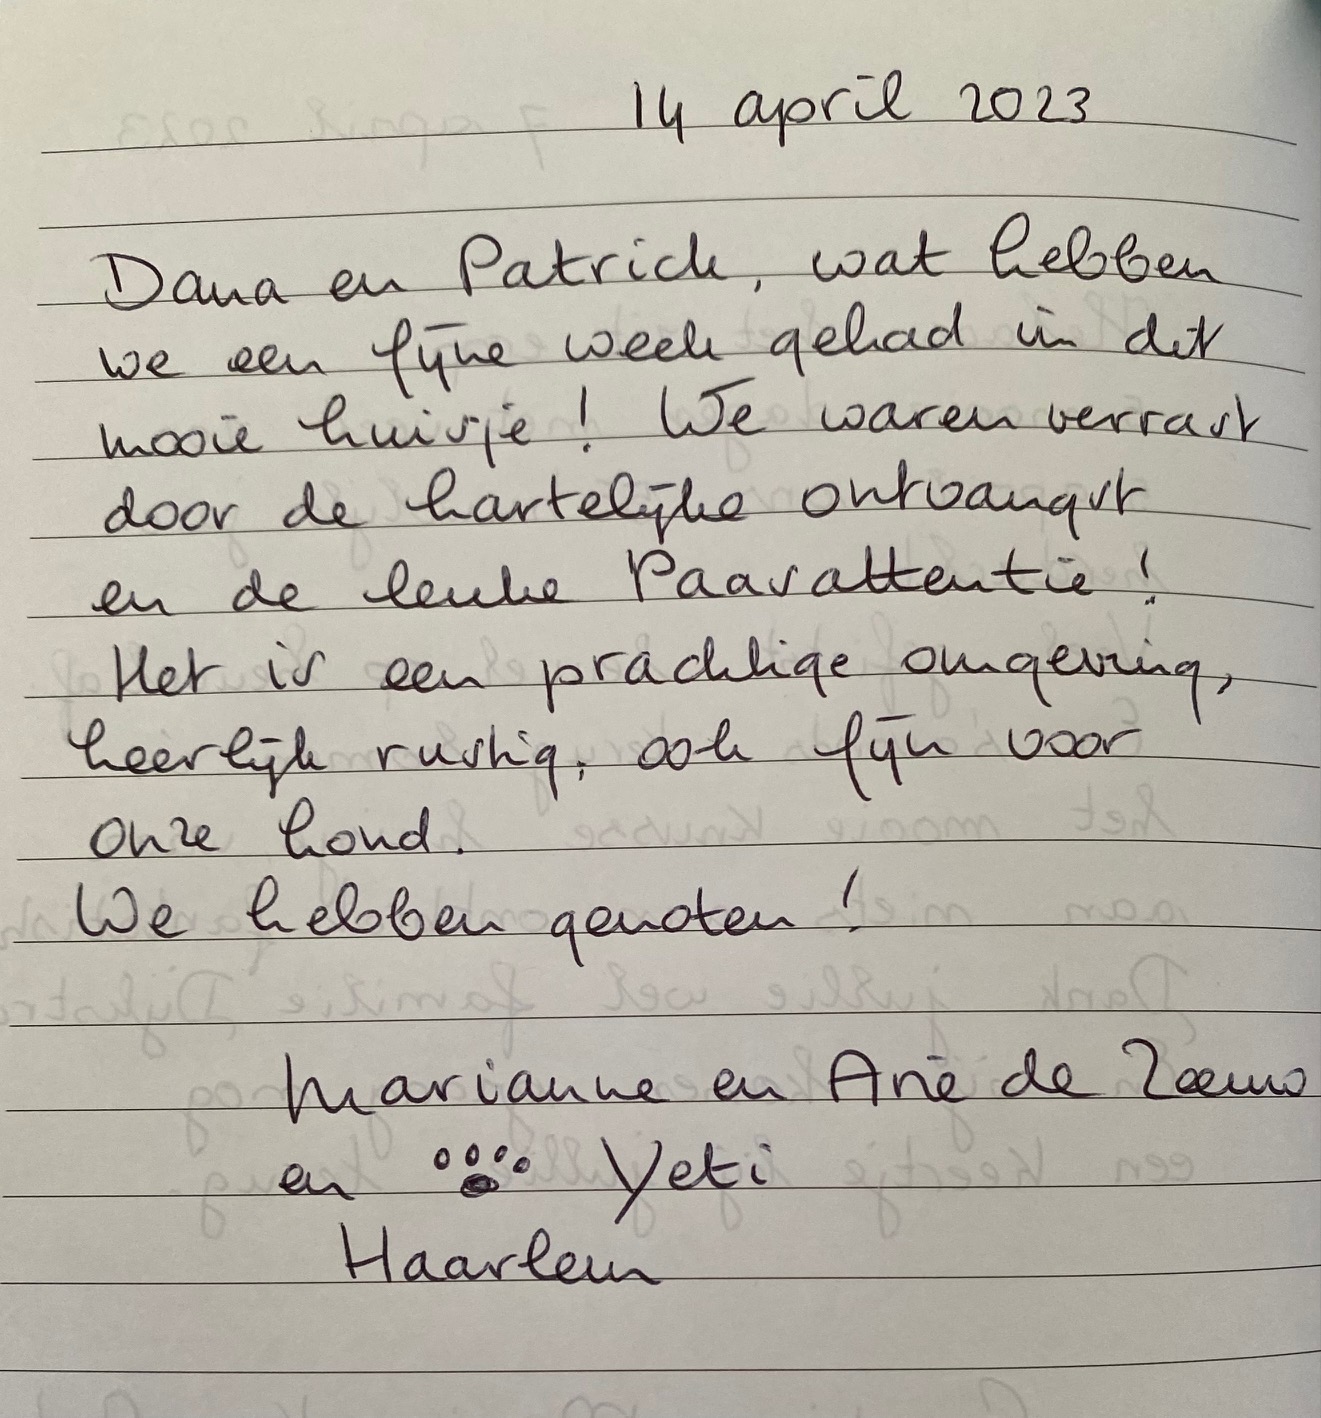 14 april 2023
Dana en Patrick, wat hebben
we een fijne week gehad in dit
mooie huisje! We waren verrast
door de hartelijke ontvangst
en de leuke Paasattentie!
Het is een prachtige omgeving,
heerlijk rustig, ook fijn voor
onze hond.
We hebben genoten!
Marianne en Arie de
en Yeti
Haarlem